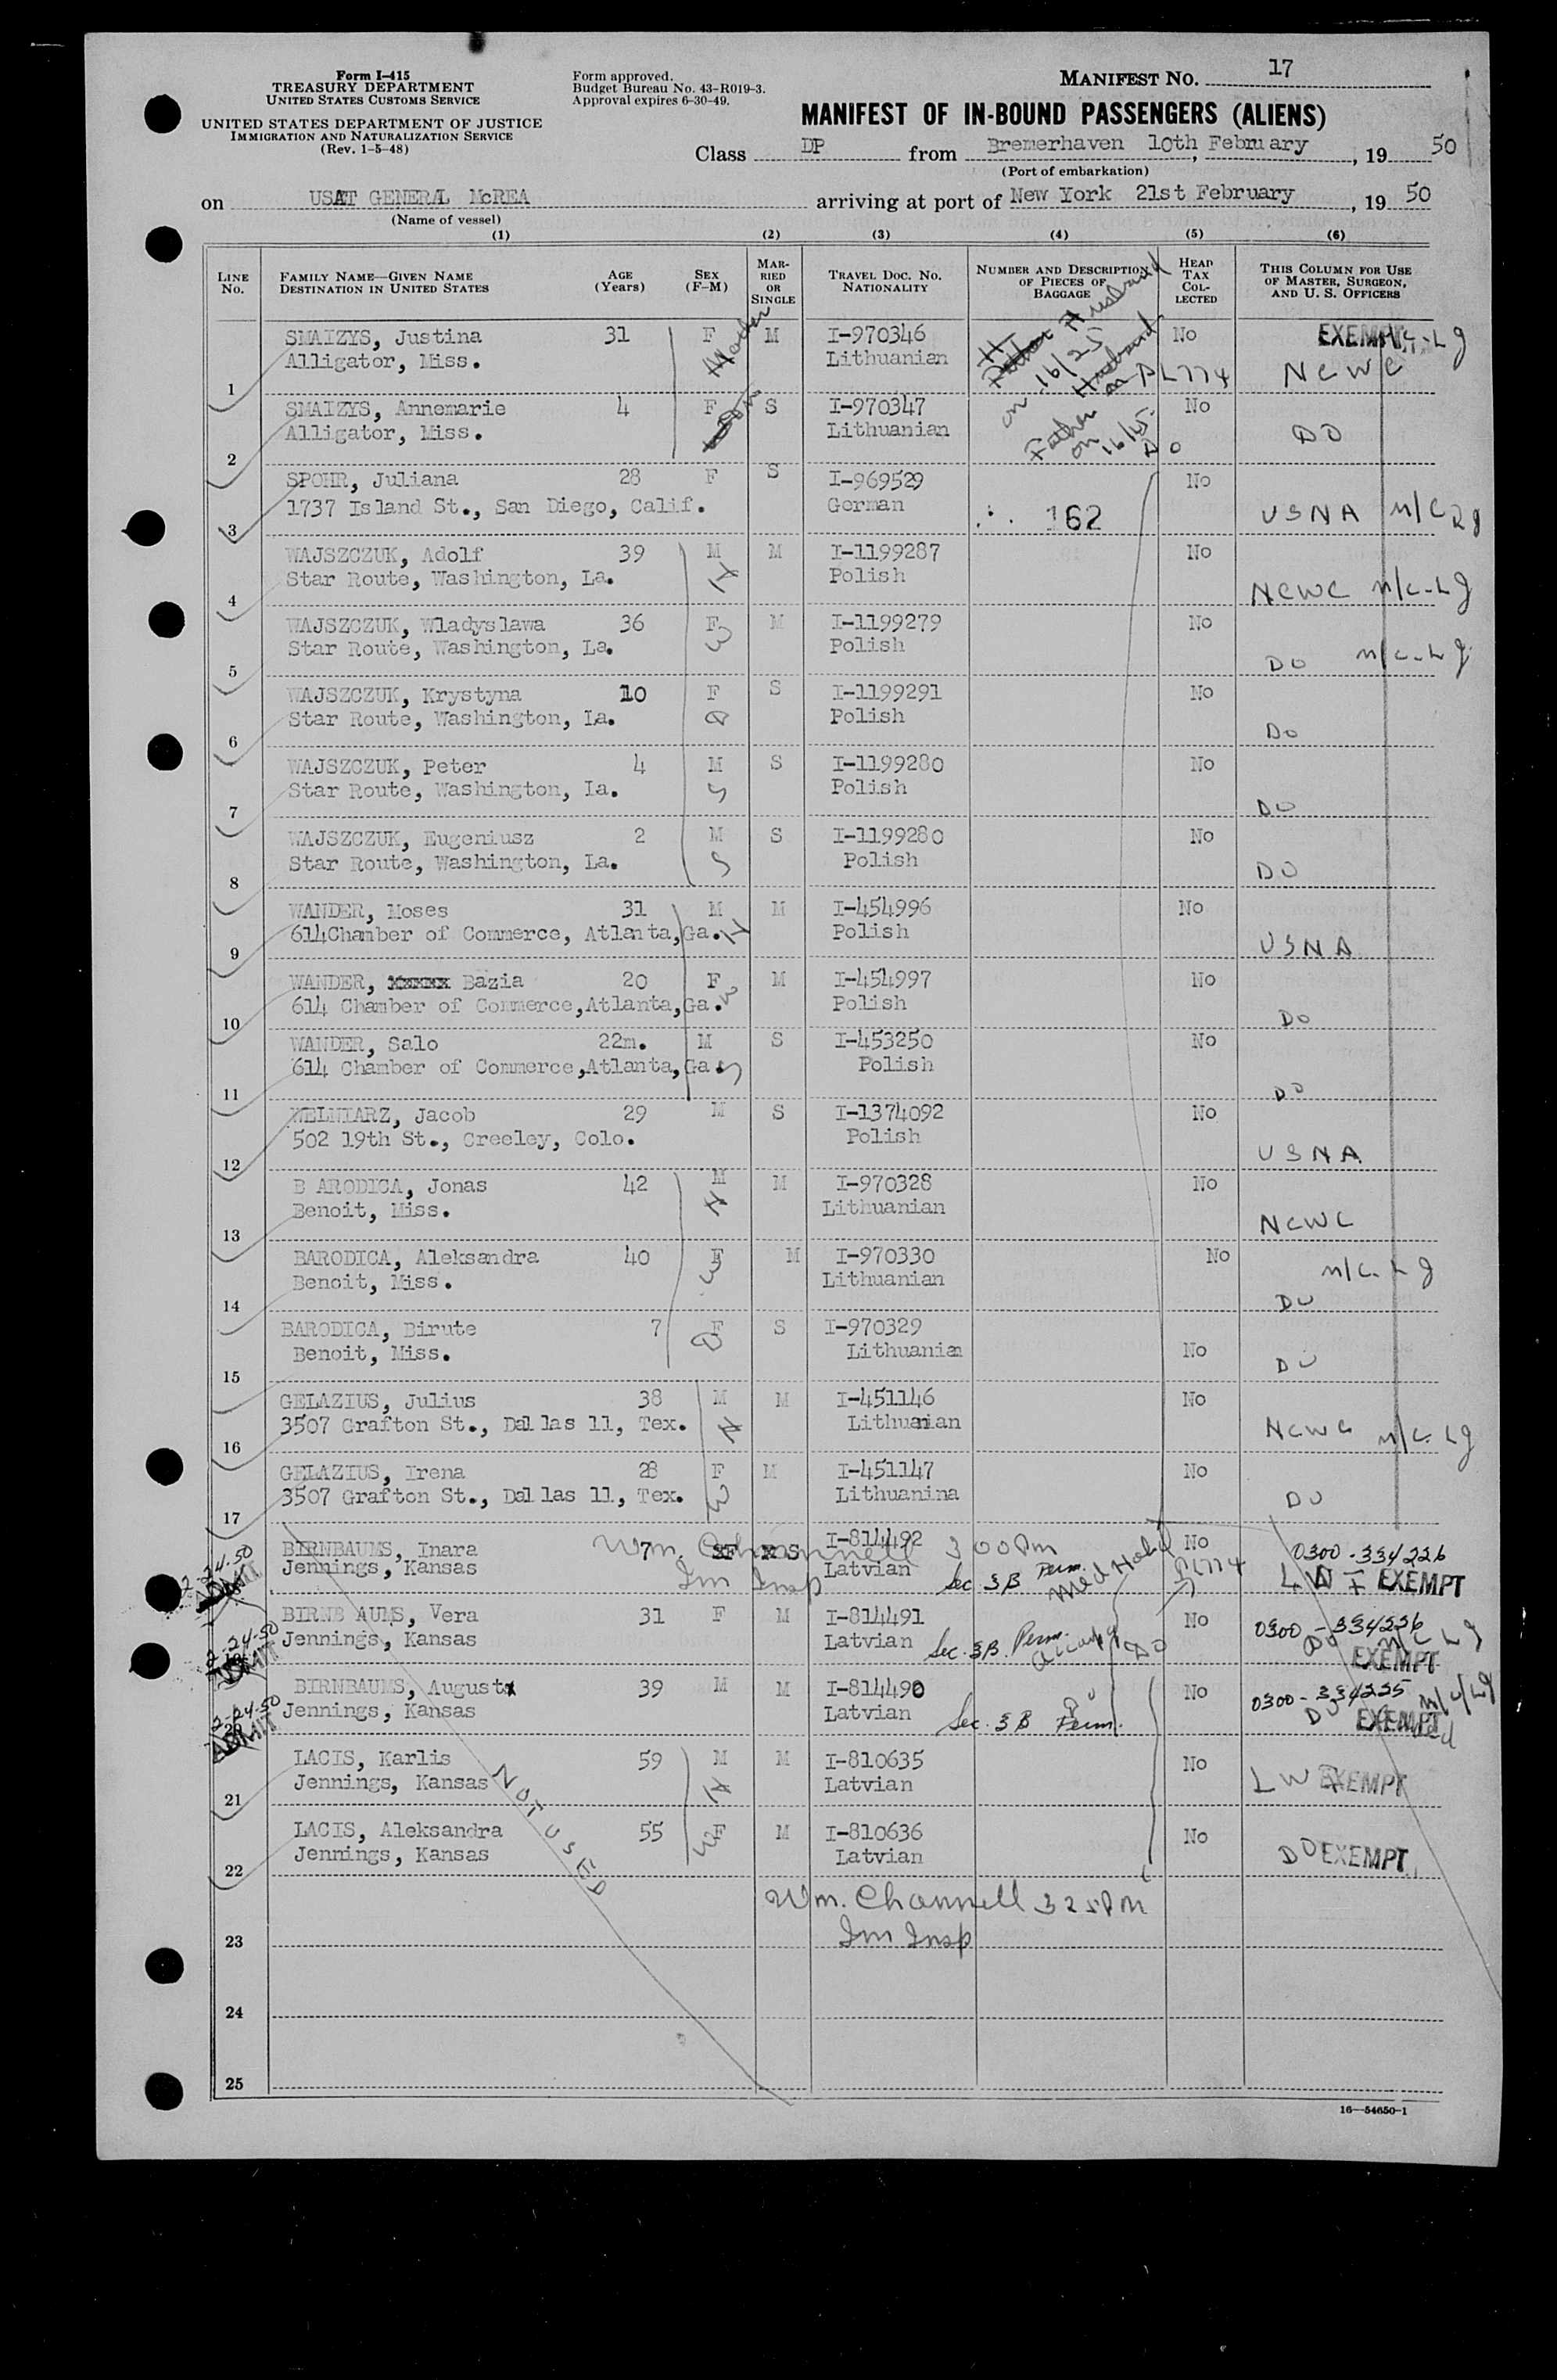 Form I-415
TREASURY DEPARTMENT
UNITED STATES CUSTOMS SERVICE
UNITED STATES DEPARTMENT OF JUSTICE
IMMIGRATION AND NATURALIZATION SERVICE
(Rev. 1-5-48)
Form approved.
Budget Bureau No. 43-R019-3.
Approval expires 6-30-49.
MANIFEST NO. 17
MANIFEST OF IN-BOUND PASSENGERS (ALIENS)
Class DP from Bremerhaven 10th, February, 19 50
(Port of embarkation)
on USAT GENERAL McREA arriving at port of New York 21st February, 19 50
(Name of vessel)
(1) (2) (3) (4) (5) (6)
LINE NO. FAMILY NAME—GIVEN NAME DESTINATION IN UNITED STATES AGE (Years) SEX (F-M) MARRIED OR SINGLE TRAVEL DOC. NO. NATIONALITY NUMBER AND DESCRIPTION OF PIECES OF BAGGAGE HEAD TAX COLLECTED THIS COLUMN FOR USE OF MASTER, SURGEON, AND U. S. OFFICERS
SMAIZYS, Justina 31 F M I-970346 No EXEMPT
1 Alligator, Miss. Mother Lithuanian on 16/25 Husband PL774 NCWC
SMAIZYS, Annemarie 4 F S I-970347 No
2 Alligator, Miss. Lithuanian Father on 16/25 Do DO
SPOHR, Juliana 28 F S I-969529 No
3 1737 Island St., San Diego, Calif. German 162 USNA M/C Lg
WAJSZCZUK, Adolf 39 M M I-1199287 No
4 Star Route, Washington, La. H Polish NCWC M/C-Lg
WAJSZCZUK, Wladyslawa 36 F M I-1199279 No
5 Star Route, Washington, La. W Polish DO M/C-Lg
WAJSZCZUK, Krystyna 10 F S I-1199291 No
6 Star Route, Washington, La. D Polish Do
WAJSZCZUK, Peter 4 M S I-1199280 No
7 Star Route, Washington, Ia. S Polish DO
WAJSZCZUK, Eugeniusz 2 M S I-1199280 No
8 Star Route, Washington, La. S Polish DO
WANDER, Moses 31 M M I-454996 No
9 614Chamber of Commerce, Atlanta,Ga. H Polish USNA
WANDER, xxxxx Bazia 20 F M I-454997 No
10 614 Chamber of Commerce,Atlanta,Ga. W Polish Do
WANDER, Salo 22m. M S I-453250 No
11 614 Chamber of Commerce,Atlanta,Ga. S Polish DO
WELNIARZ, Jacob 29 M S I-1374092 No
12 502 19th St., Creeley, Colo. Polish USNA
B ARODICA, Jonas 42 M M I-970328 No
13 Benoit, Miss. H Lithuanian NCWC
BARODICA, Aleksandra 40 F M I-970330 No
14 Benoit, Miss. W Lithuanian DO M/C-Lg
BARODICA, Birute 7 F S I-970329
15 Benoit, Miss. D Lithuanian No DO
GELAZIUS, Julius 38 M M I-451146 No
16 3507 Grafton St., Dallas 11, Tex. H Lithuanian NCWC M/C-Lg
GELAZIUS, Irena 28 F M I-451147 No
17 3507 Grafton St., Dallas 11, Tex. W Lithuanina DO
Wm. Channell 300 Pm
Im Insp
BIRNBAUMS, Inara 7 F S I-814492 No 0300-334226
Jennings, Kansas Latvian Sec 3B Perm. Med Hold PL774 LWF EXEMPT
2-24-50 ADMIT
BIRNB AUMS, Vera 31 F M I-814491 No 0300-334236
Jennings, Kansas Latvian Sec. 3B. Perm. Do Do M/C Lg EXEMPT
2-24-50 ADMIT
BIRNBAUMS, August 39 M M I-814490 No 0300-334235
20 Jennings, Kansas Latvian Sec. 3B Perm. DO M/C/Lg EXEMPT
2-24-50 ADMIT
LACIS, Karlis 59 M M I-810635 No
21 Jennings, Kansas H Latvian LWF EXEMPT
LACIS, Aleksandra 55 F M I-810636 No
22 Jennings, Kansas W Latvian DO EXEMPT
NOT USED
Wm. Channell 325 Pm
23 Im Insp
24
25
16—54650-1